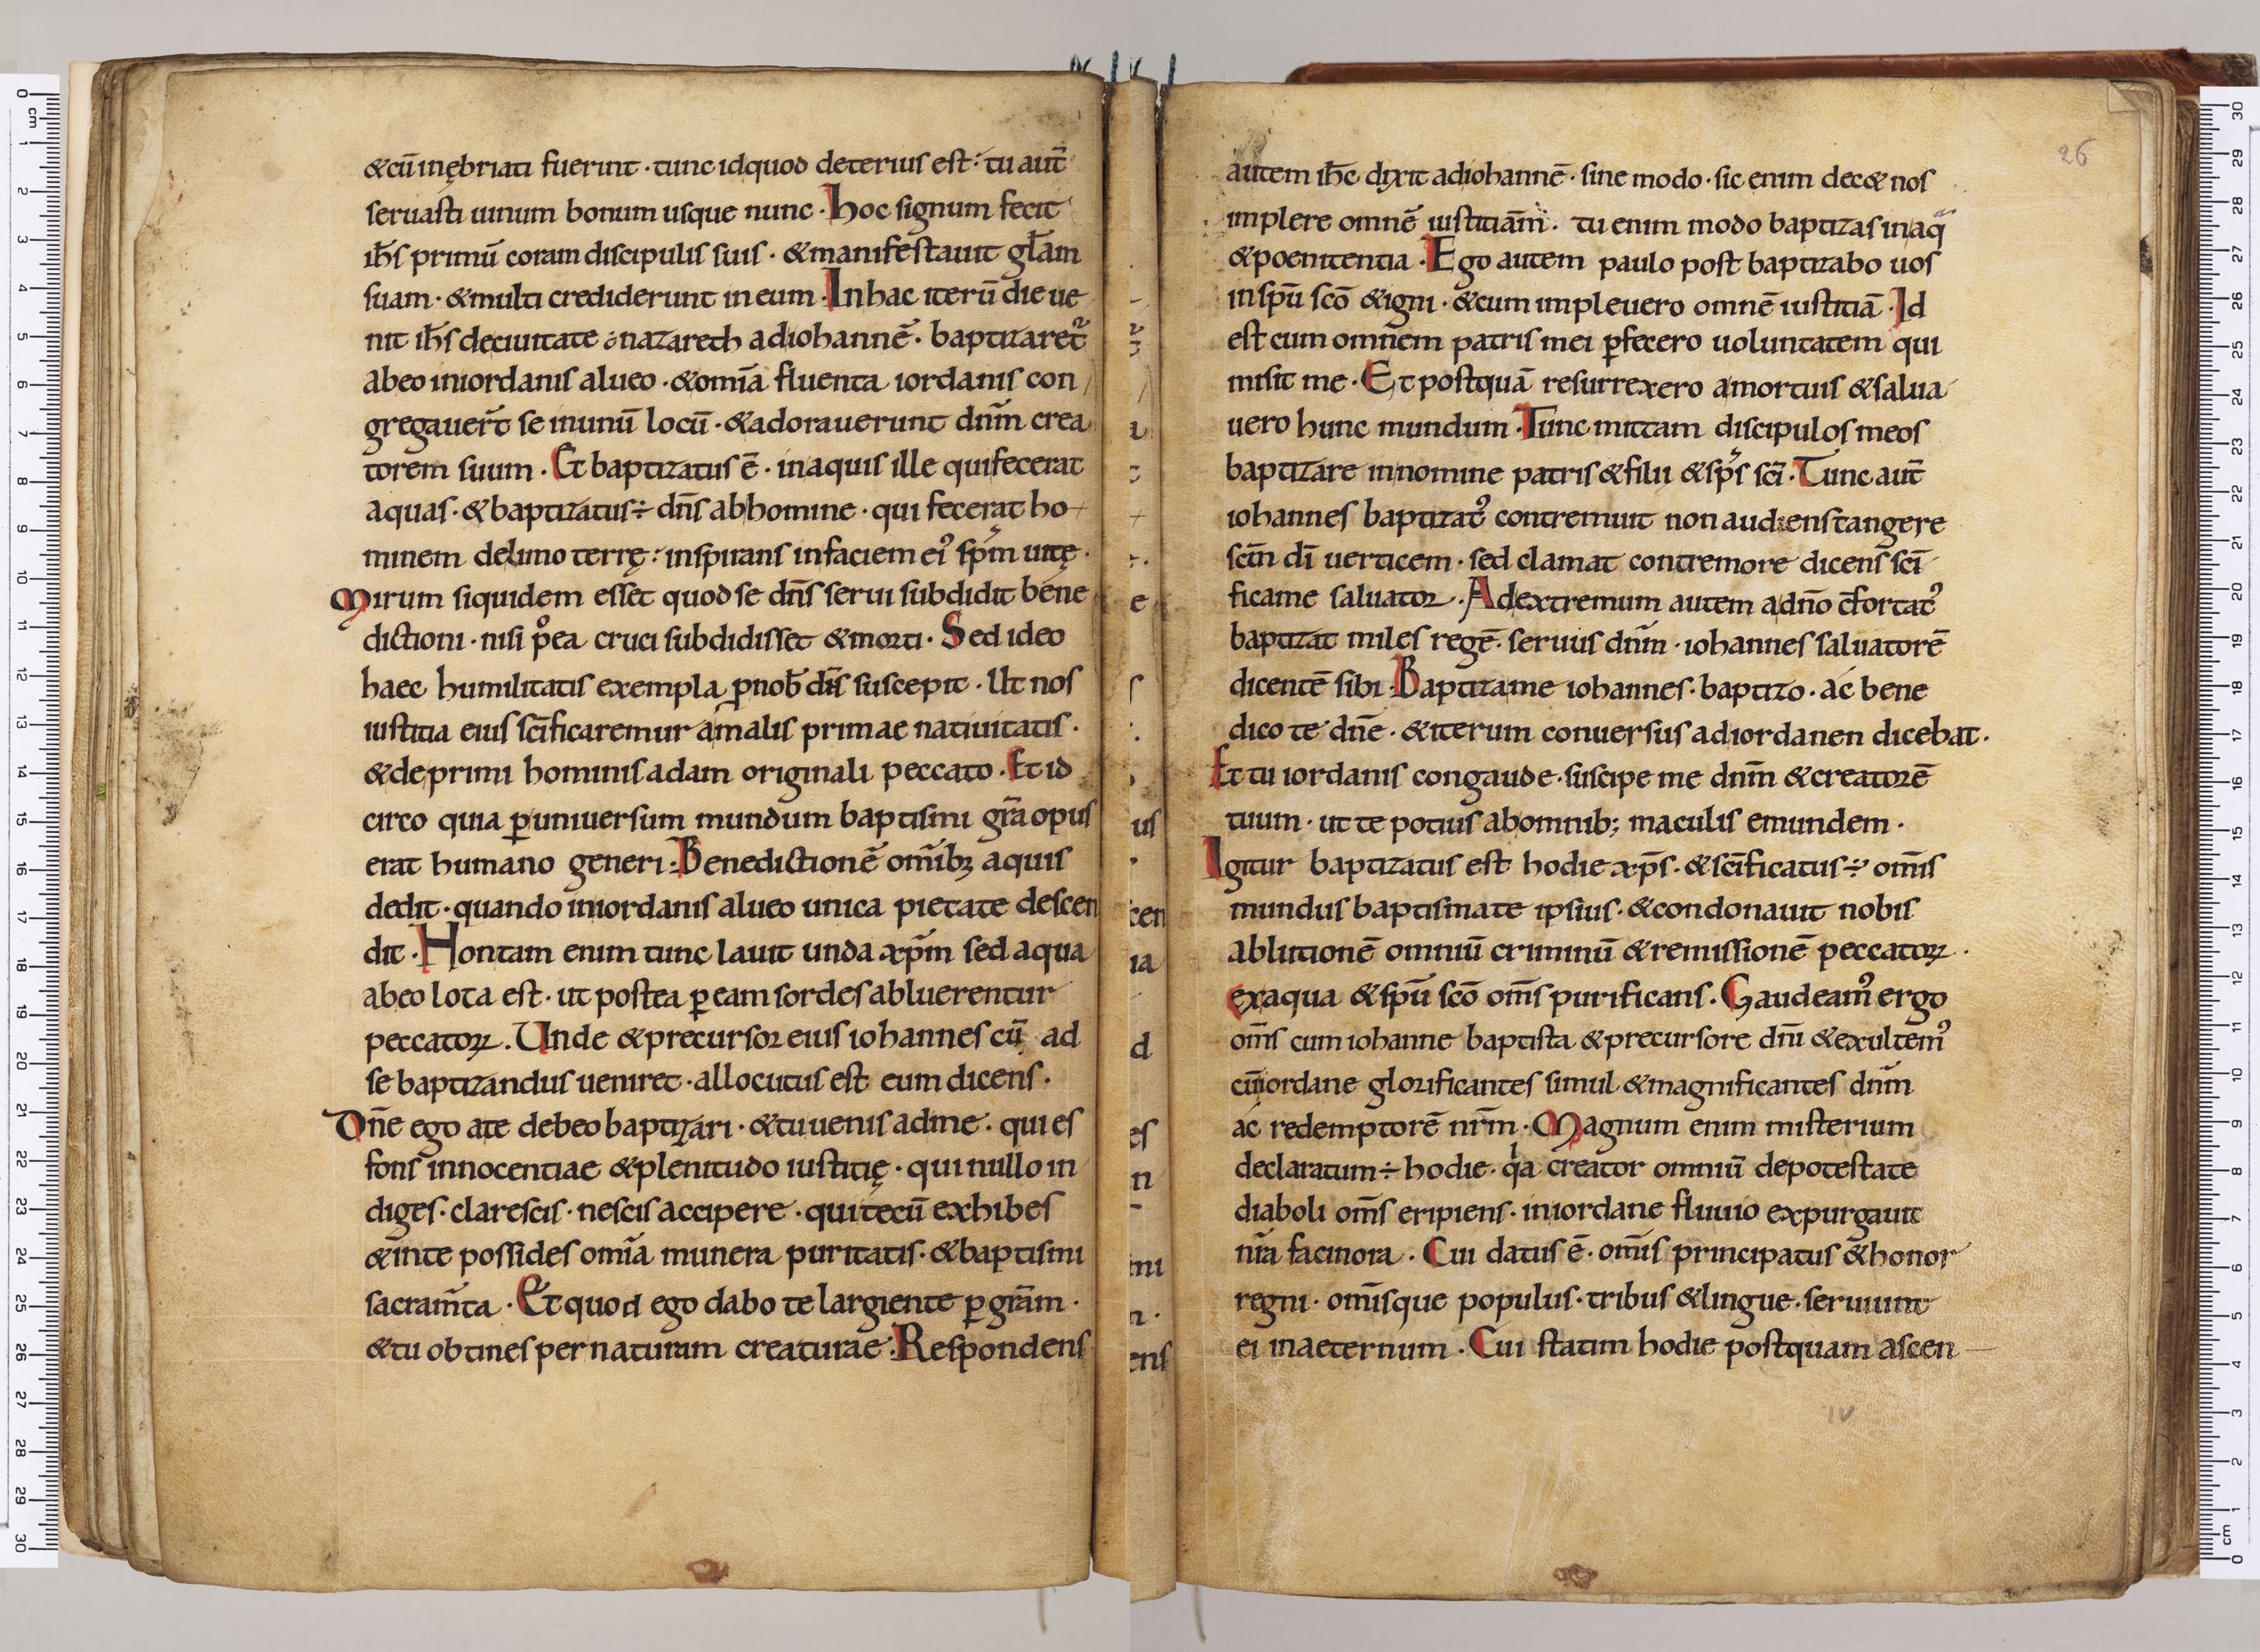 &cū inębriati fuerint · tunc id quod deterius est · tu aut̄
seruasti uinum bonum usque nunc · Hoc signum fecit
ih̄s primū coram discipulis suis · & manifestauit gl̄am
suam · & multi crediderunt in eum · In hac iterū die ue
nit ih̄s de ciuitate nazareth ad iohannē · baptizaret᷑
ab eo in iordanis alueo · & om̄ia fluenta iordanis con
gregauer̄t se in unū locū · & adorauerunt dn̄m crea
torem suum · Et baptizatus ē · in aquis ille qui fecerat
aquas · & baptizatus ÷ dn̄s ab homine · qui fecerat ho
minem de limo terrę · inspirans in faciem ei᾽ sp̄m uitę ·
Mirum siquidem esset quod se dn̄s serui subdidit bene
dictioni · nisi p̊ea cruci subdidisset & morti · Sed ideo
haec humilitatis exempla p̱ nob̄ dn̄s suscepit · Ut nos
iustitia eius sc̄ificaremur a malis primae natiuitatis ·
& de primi hominis adam originali peccato · Et id
circo quia ꝑ uniuersum mundum baptismi gr̄a opus
erat humano generi · Benedictionē om̄ibꝫ aquis
dedit · quando in iordanis alueo unica pietate descen
dit · Non tam enim tunc lauit unda xp̄m sed aqua
ab eo lota est · ut postea ꝑ eam sordes abluerentur
peccatoꝝ · Unde & precursor eius iohannes cū ad
se baptizandus ueniret · allocutus est eum dicens ·
Dn̄e ego a te debeo baptizari · & tu uenis ad me · qui es
fons innocentiae & plenitudo iustitię · qui nullo in
diges · clarescis · nescis accipere · qui tecū exhibes
& in te possides om̄ia munera puritatis · & baptismi
sacram̄ta · Et quod ego dabo te largiente ꝑ gr̄am ·
& tu obtines per naturam creaturae · Respondens
26
autem ih̄c dixit ad iohannē · sine modo · sic enim dec& nos
implere omnē iustitiām · tu enim modo baptizas in aq̄
& poenitentia · Ego autem paulo post baptizabo uos
in sp̄u sc̄o & igni · & cum impleuero omnē iustitiā · Id
est cum omnem patris mei ꝑfecero uoluntatem qui
misit me · Et postquā resurrexero a mortuis & salua
uero hunc mundum · Tunc mittam discipulos meos
baptizare in nomine patris & filii & sp̄s sc̄i · Tunc aut̄
iohannes baptizat᾽ contremuit non audiens tangere
sc̄m dī uerticem · sed clamat cum tremore dicens sc̄i
fica me saluator · Ad extremum autem a dn̄o c̄fortat᾽
baptizat miles regē · seruus dn̄m · iohannes saluatorē
dicentē sibi · Baptiza me iohannes · baptizo · ac bene
dico te dn̄e · & iterum conuersus ad iordanen dicebat ·
Et tu iordanis congaude · suscipe me dn̄m & creatorē
tuum · ut te potius ab omnib; maculis emundem ·
Igitur baptizatus est hodie xp̄s · & sc̄ificatus ÷ om̄is
mundus baptismate ipsius · & condonauit nobis
ablutionē omniū criminū & remissionē peccatoꝝ ·
ex aqua & sp̄u sc̄o om̄s purificans · Gaudeam᾽ ergo
om̄s cum iohanne baptista & precursore dn̄i & exultem᾽
cū iordane glorificantes simul & magnificantes dn̄m
ac redemptorē nr̄m · Magnum enim misterium
declaratum ÷ hodie · qͥa creator omniū de potestate
diaboli om̄s eripiens · in iordane fluuio expurgauit
nr̄a facinora · Cui datus ē · om̄is principatus & honor
regni · om̄isque populus · tribus & lingue · seruiunt
ei in aeternum · Cui statim hodie postquam ascen
IV